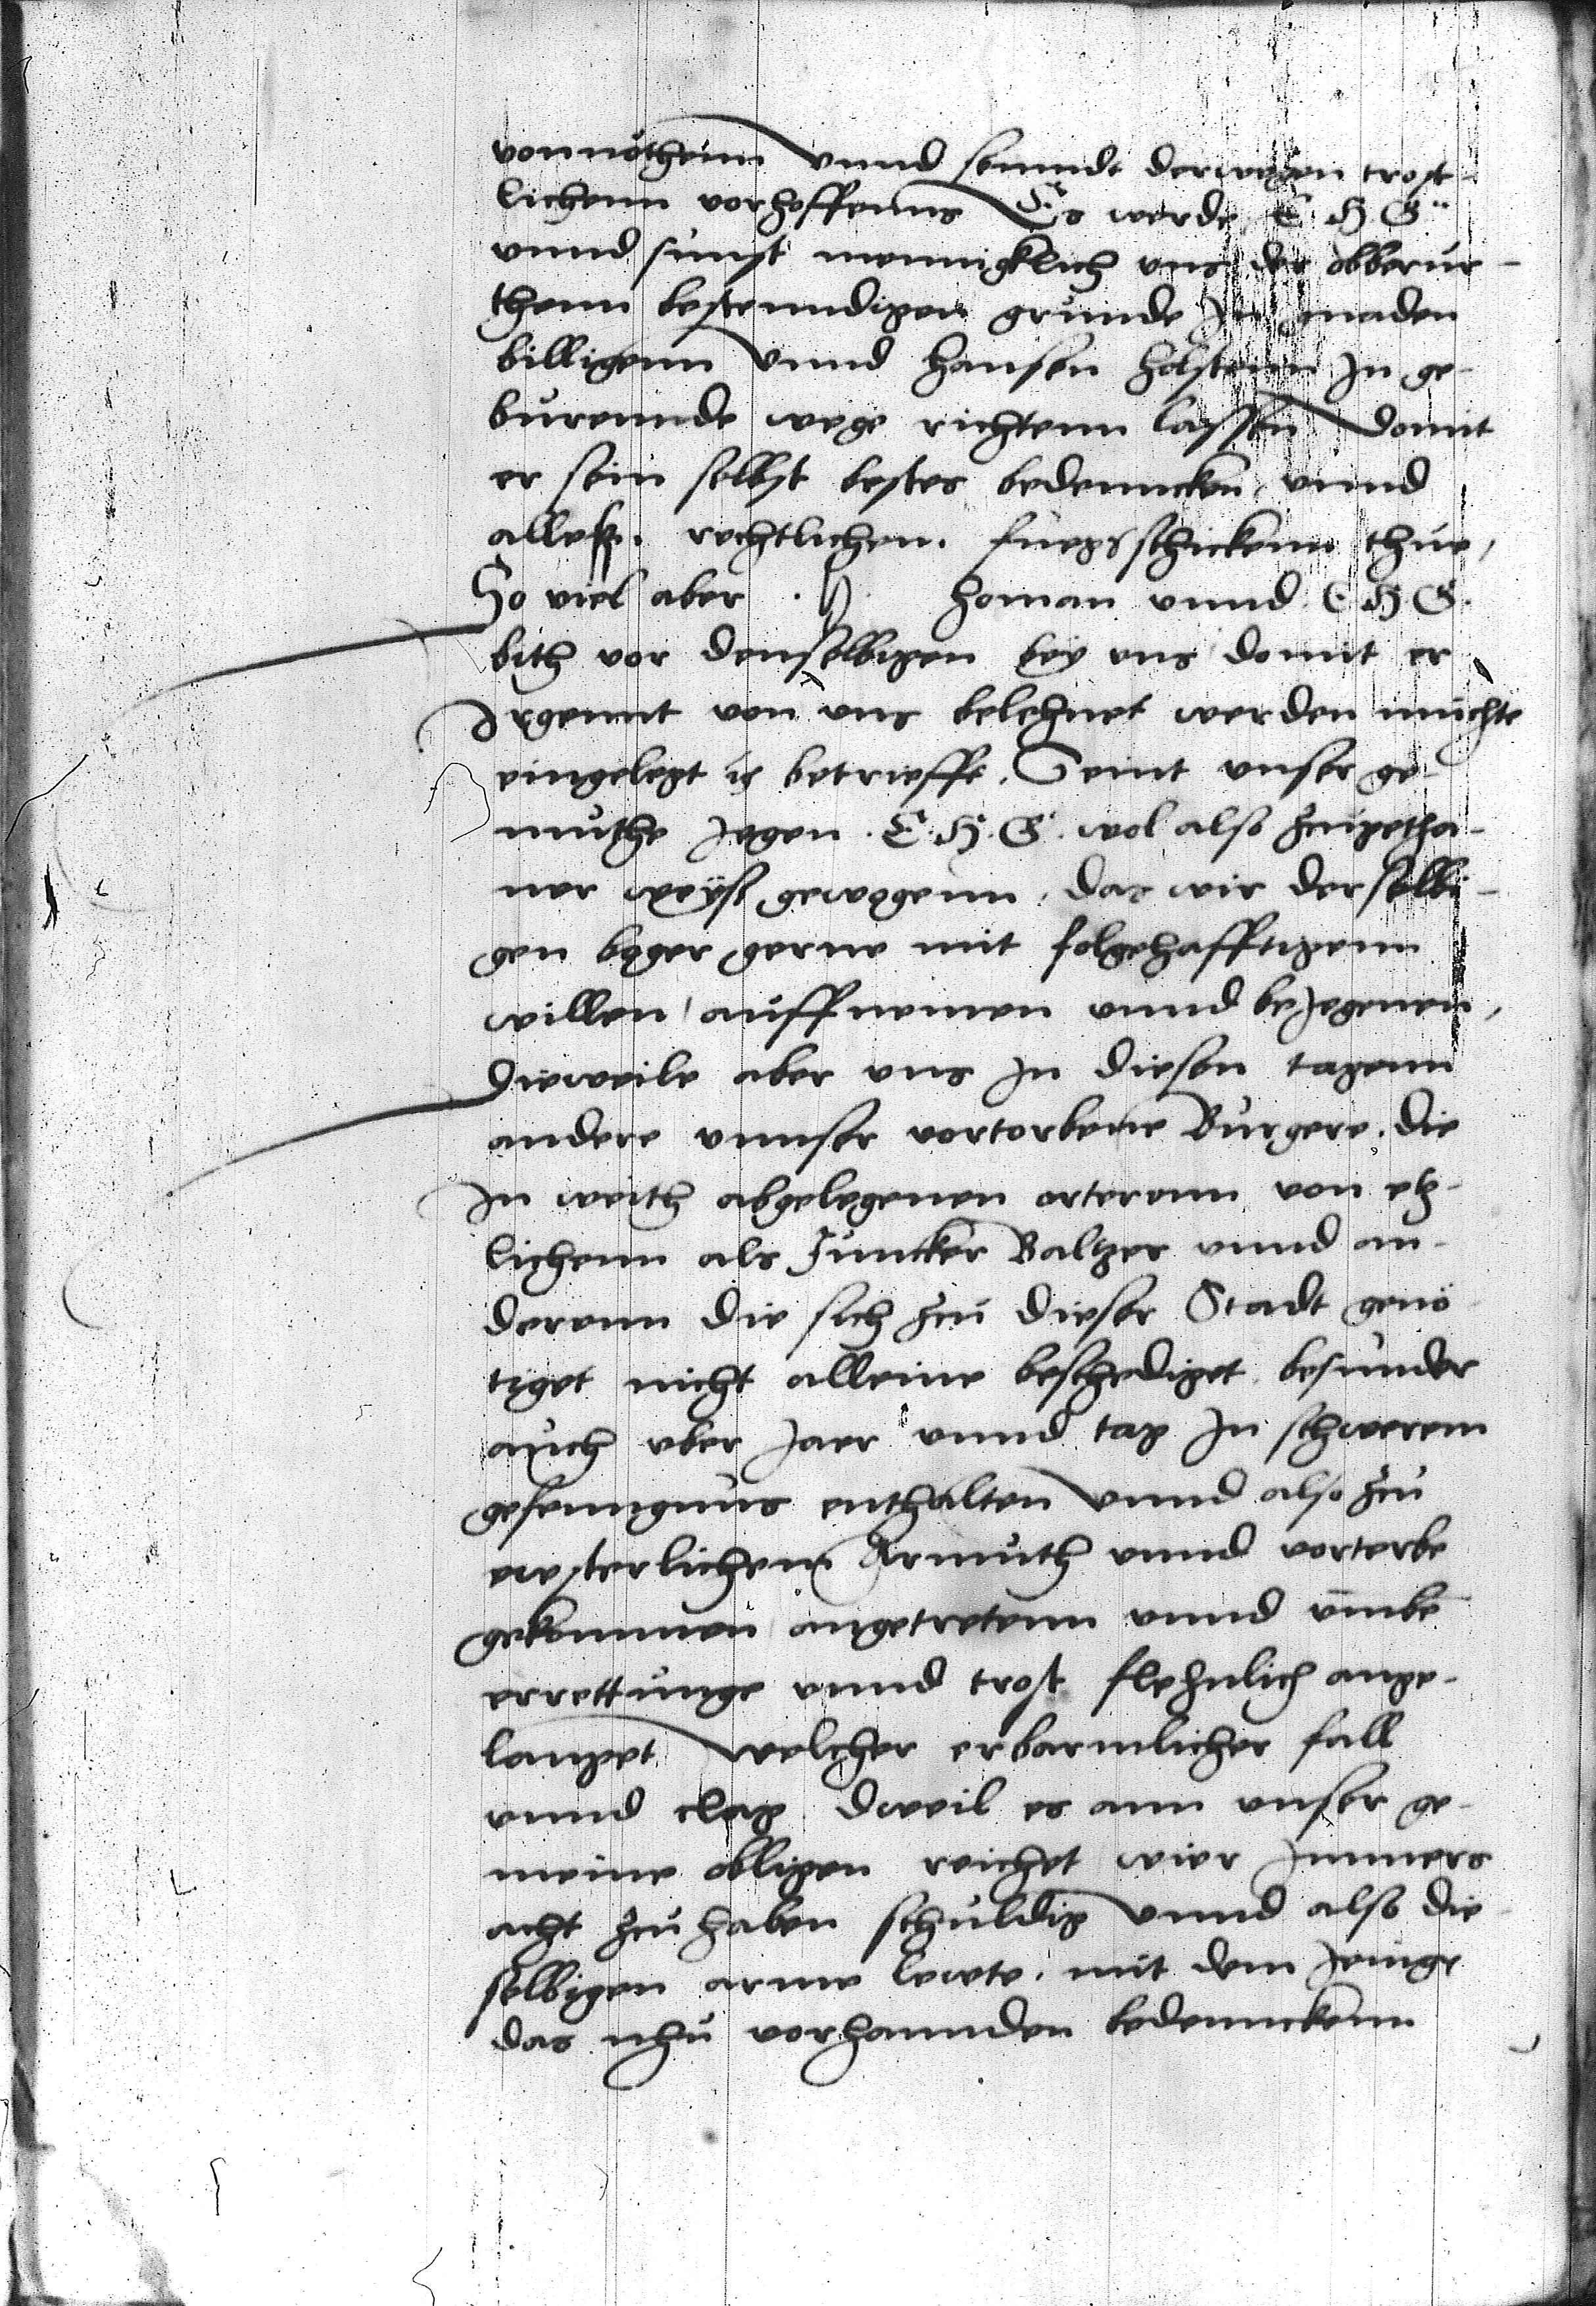 vonnötheim vnnd semndt derwegen trost-
lichenn vorhoffenns Es werde E H G
vnnd sunst mennigklich vns der obberur-
thenn bestenndigen grunde In gnaden
billigenn vnnd Hansen Holstenn In ge-
burennde wege richtenn lassen domit
er sein selbst bestes bedenncken vnnd
alless rechtlichen fuegs schickenn thue,
So viel aber . H. homan vnnd E H G.
bith vor denselbigen bey vns domit er
Irgennt von vns belehnet werden müchte
eingelegt is betrieffe, Seint vnser ge-
muthe Jegen . E. H. G. wol also zugetha-
ner weyß gewogenn, das wir derselbi-
gen beger gerne mit folgehafftigenn
willen auffnemen vnnd beJegenen,
Dieweile aber vns In diesen tagenn
andere vnnser vortorbene Burgere, die
In weith abgelegenen orterenn von etz-
lichenn als Juncker Baltzer vnnd an-
derenn die sich zu dieser Stadt genö
tiget nicht alleine beschediget besunder
auch vber Jaer vnnd tag In schwerem
gefenngnus enthalten vnnd also zu
eusterlichem Armuth vnnd vorterbe
gekommen angetretenn vnnd vmbe
errettunge vnnd trost flehnlich ange-
langet, welcher erbarmlicher fall
vnnd clag dweil es ann vnser ge-
meine obligen reichet wier Immers
acht zu haben schuldig vnnd also die-
selbigen arme lewte, mit dem Jenige
das nhu vorhannden bedennckenn